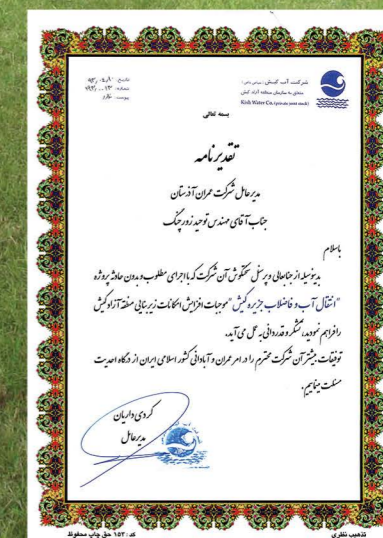 شرکت آب کیش (سهامی خاص)
متعلق به سازمان منطقه آزاد کیش
Kish Water Co. (private joint stock)
تاریخ:
شماره:
پیوست: ندارد
بسمه تعالی
تقدیرنامه
مدیرعامل شرکت عمران آذرستان
جناب آقای مهندس توحید زورچنگ
باسلام
بدینوسیله از جنابعالی و پرسنل سختکوش آن شرکت که با اجرای مطلوب و بدون حادثه پروژه
"انتقال آب و فاضلاب جزیره کیش" موجبات افزایش امکانات زیربنایی منطقه آزاد کیش
را فراهم نمودید، تشکر و قدردانی به عمل می آید.
توفیقات بیشتر آن شرکت محترم را در امر عمران و آبادانی کشور اسلامی ایران از درگاه احدیت
مسئلت مینماییم.
کردی داریان
مدیرعامل
تذهیب نظری
کد: ۱۵۳ حق چاپ محفوظ